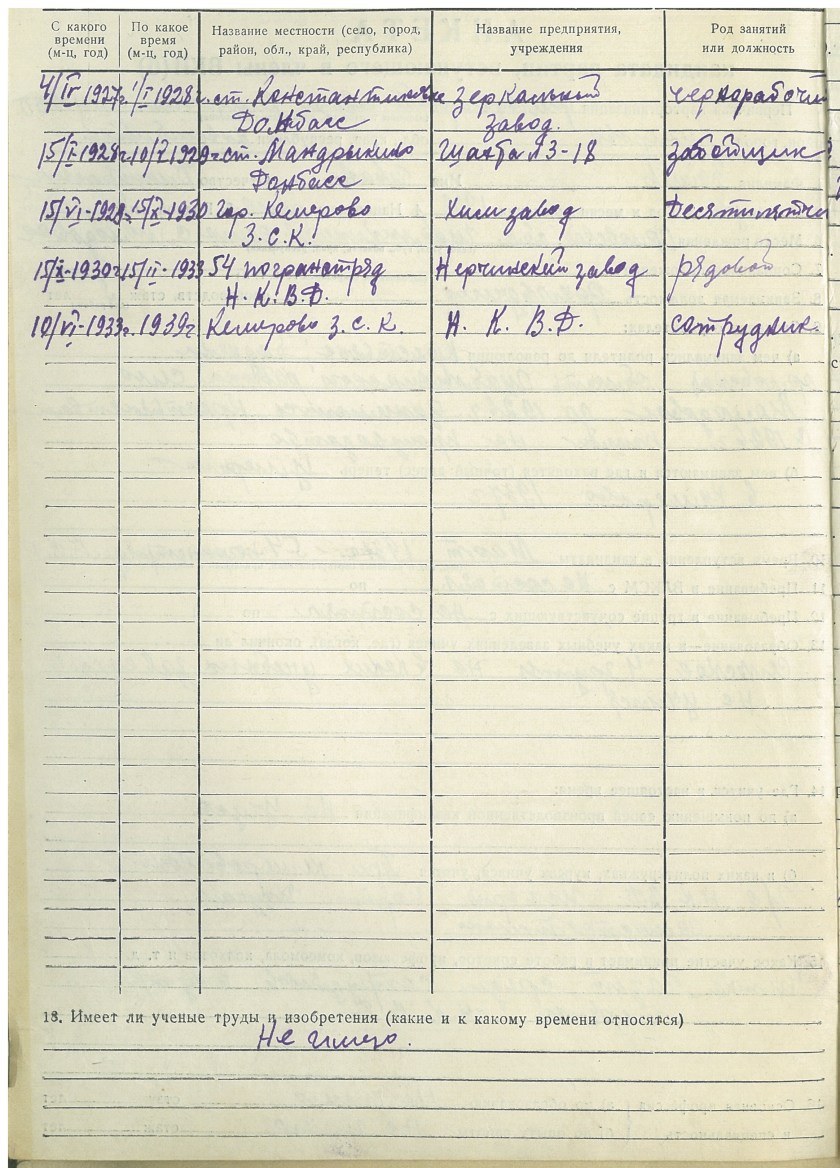 С какого времени (м-ц, год) По какое время (м-ц, год) Название местности (село, город, район, обл., край, республика) Название предприятия, учреждения Род занятий или должность
4/IV 1927г. 1/I 1928г. ст. Константиновка Зеркальный чернорабочий
Донбасс завод.
15/I-1928г. 10/V 1929г. ст. Мандрыкино Шахта 13-18 забойщик
Донбасс
15/VI-1929г. 15/IX-1930 гор. Кемерово Химзавод Десятилятчи
З.С.К.
15/IX-1930г. 15/II-1933 54 погранотряд Нерчинский завод рядовой
Н.К.В.Д.
10/VI-1933г. 1939г. Кемерово З.С.К. Н. К. В. Д. сотрудник.
13. Имеет ли ученые труды и изобретения (какие и к какому времени относятся)
Не имею.